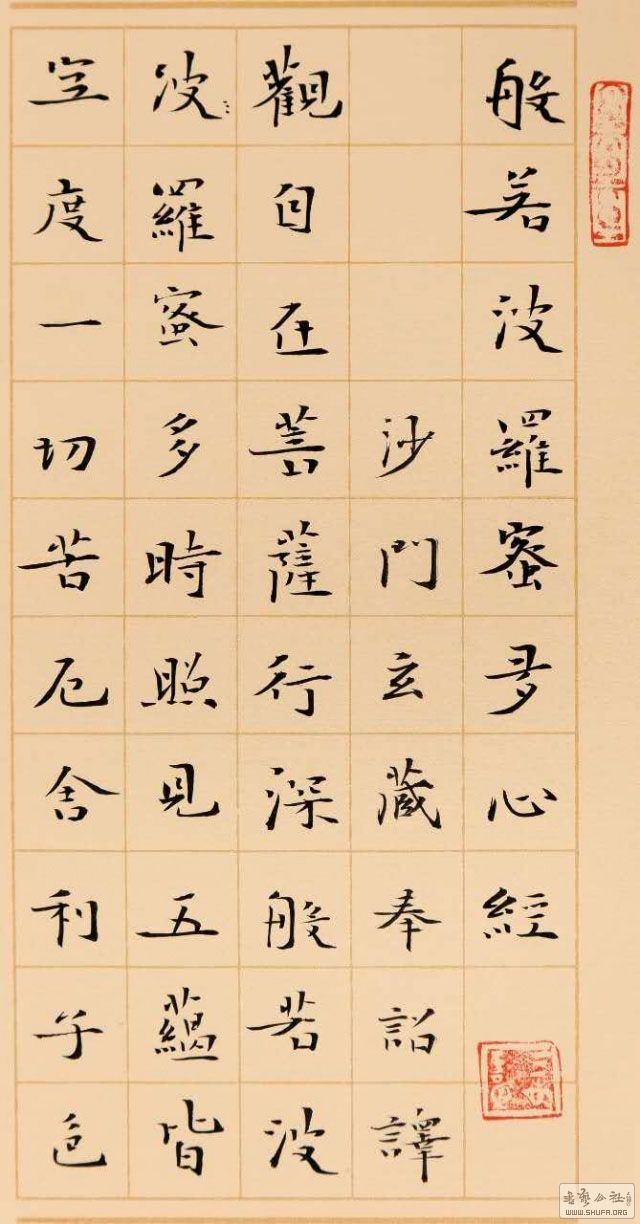 般若波羅蜜多心經
沙門玄藏奉詔譯
觀自在菩薩行深般若波
波羅蜜多時照見五蘊皆
空度一切苦厄舍利子色
WWW.SHUFA.ORG